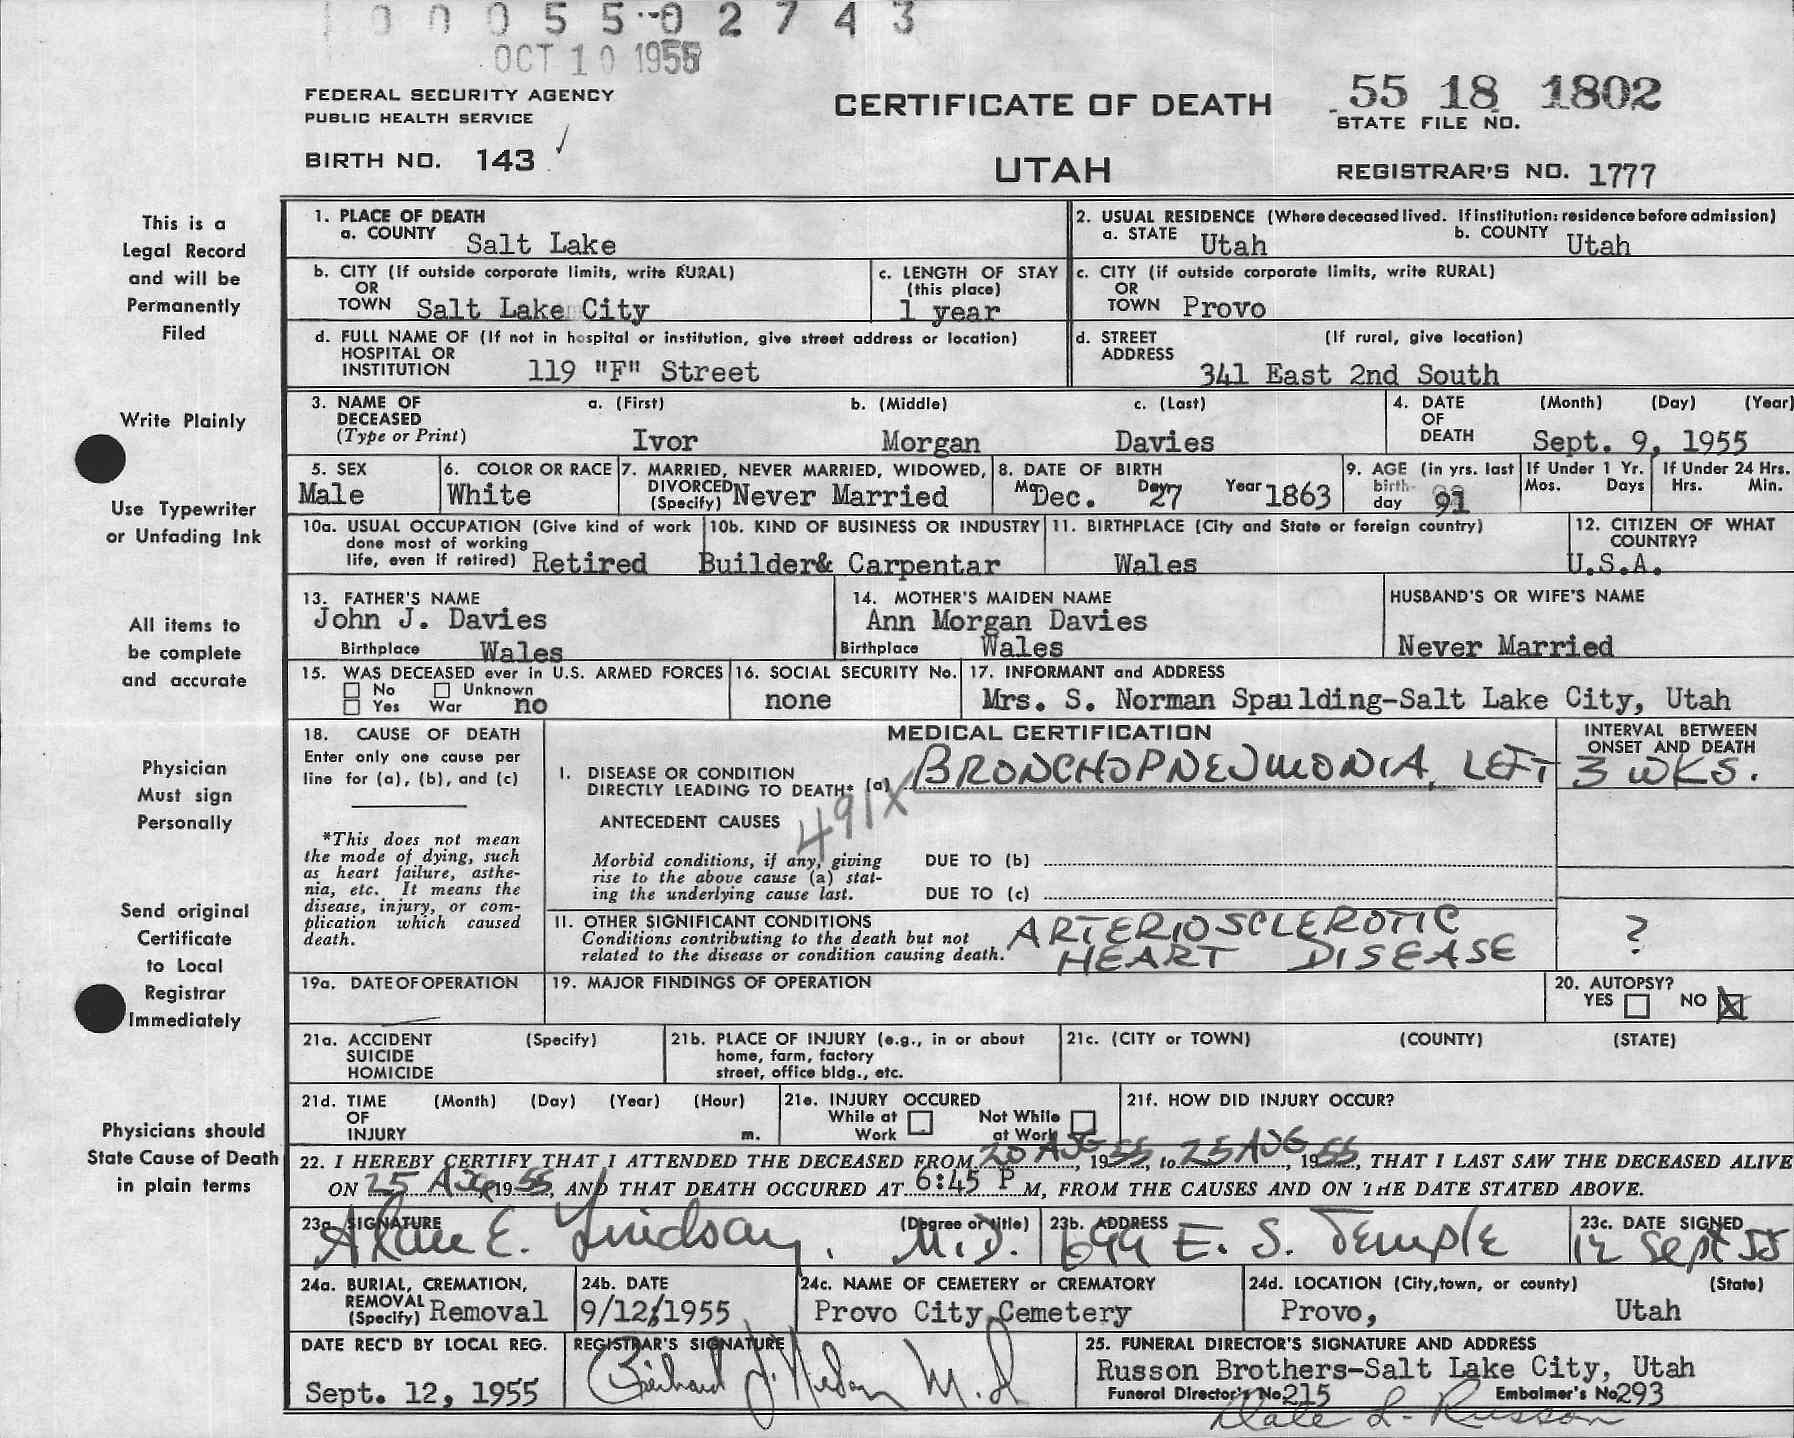 0 0 0 5 5 0 2 7 4 3
OCT 10 1955
FEDERAL SECURITY AGENCY
PUBLIC HEALTH SERVICE
BIRTH NO. 143
CERTIFICATE OF DEATH
UTAH
55 18 1802
STATE FILE NO.
REGISTRAR'S NO. 1777
This is a
Legal Record
and will be
Permanently
Filed
Write Plainly
Use Typewriter
or Unfading Ink
All items to
be complete
and accurate
Physician
Must sign
Personally
Send original
Certificate
to Local
Registrar
Immediately
Physicians should
State Cause of Death
in plain terms
1. PLACE OF DEATH
a. COUNTY Salt Lake
2. USUAL RESIDENCE (Where deceased lived. If institution: residence before admission)
a. STATE Utah b. COUNTY Utah
b. CITY (If outside corporate limits, write RURAL)
OR
TOWN Salt Lake City
c. LENGTH OF STAY
(this place)
1 year
c. CITY (if outside corporate limits, write RURAL)
OR
TOWN Provo
d. FULL NAME OF (If not in hospital or institution, give street address or location)
HOSPITAL OR
INSTITUTION 119 "F" Street
d. STREET (If rural, give location)
ADDRESS
341 East 2nd South
3. NAME OF a. (First) b. (Middle) c. (Last)
DECEASED
(Type or Print) Ivor Morgan Davies
4. DATE (Month) (Day) (Year)
OF
DEATH Sept. 9, 1955
5. SEX
Male
6. COLOR OR RACE
White
7. MARRIED, NEVER MARRIED, WIDOWED,
DIVORCED
(Specify) Never Married
8. DATE OF BIRTH
Mo. Dec. Day 27 Year 1863
9. AGE (in yrs. last
birth-
day 91
If Under 1 Yr.
Mos. Days
If Under 24 Hrs.
Hrs. Min.
10a. USUAL OCCUPATION (Give kind of work
done most of working
life, even if retired) Retired
10b. KIND OF BUSINESS OR INDUSTRY
Builder& Carpentar
11. BIRTHPLACE (City and State or foreign country)
Wales
12. CITIZEN OF WHAT
COUNTRY?
U.S.A.
13. FATHER'S NAME
John J. Davies
Birthplace Wales
14. MOTHER'S MAIDEN NAME
Ann Morgan Davies
Birthplace Wales
HUSBAND'S OR WIFE'S NAME
Never Married
15. WAS DECEASED ever in U.S. ARMED FORCES
No Unknown
Yes War no
16. SOCIAL SECURITY No.
none
17. INFORMANT and ADDRESS
Mrs. S. Norman Spaulding-Salt Lake City, Utah
18. CAUSE OF DEATH
Enter only one cause per
line for (a), (b), and (c)
*This does not mean
the mode of dying, such
as heart failure, asthe-
nia, etc. It means the
disease, injury, or com-
plication which caused
death.
MEDICAL CERTIFICATION
INTERVAL BETWEEN
ONSET AND DEATH
I. DISEASE OR CONDITION
DIRECTLY LEADING TO DEATH* (a) BRONCHOPNEUMONIA, LEFT 3 WKS.
491X
ANTECEDENT CAUSES
Morbid conditions, if any, giving
rise to the above cause (a) stat-
ing the underlying cause last.
DUE TO (b)
DUE TO (c)
II. OTHER SIGNIFICANT CONDITIONS
Conditions contributing to the death but not
related to the disease or condition causing death.
ARTERIOSCLEROTIC
HEART DISEASE
?
19a. DATE OF OPERATION
19. MAJOR FINDINGS OF OPERATION
20. AUTOPSY?
YES NO X
21a. ACCIDENT (Specify)
SUICIDE
HOMICIDE
21b. PLACE OF INJURY (e.g., in or about
home, farm, factory
street, office bldg., etc.
21c. (CITY or TOWN) (COUNTY) (STATE)
21d. TIME (Month) (Day) (Year) (Hour)
OF
INJURY m.
21e. INJURY OCCURED
While at Not While
Work at Work
21f. HOW DID INJURY OCCUR?
22. I HEREBY CERTIFY THAT I ATTENDED THE DECEASED FROM 20 AUG, 1955, to 25 AUG, 1955, THAT I LAST SAW THE DECEASED ALIVE
ON 25 AUG, 1955, AND THAT DEATH OCCURED AT 6:45 P M, FROM THE CAUSES AND ON THE DATE STATED ABOVE.
23a. SIGNATURE (Degree or title)
Alan E. Lindsay, M.D.
23b. ADDRESS
699 E. S. Temple
23c. DATE SIGNED
12 Sept 55
24a. BURIAL, CREMATION,
REMOVAL
(Specify) Removal
24b. DATE
9/12/1955
24c. NAME OF CEMETERY or CREMATORY
Provo City Cemetery
24d. LOCATION (City, town, or county) (State)
Provo, Utah
DATE REC'D BY LOCAL REG.
Sept. 12, 1955
REGISTRAR'S SIGNATURE
M.D.
25. FUNERAL DIRECTOR'S SIGNATURE AND ADDRESS
Russon Brothers-Salt Lake City, Utah
Funeral Director's No. 215 Embalmer's No. 293
Dale L. Russon